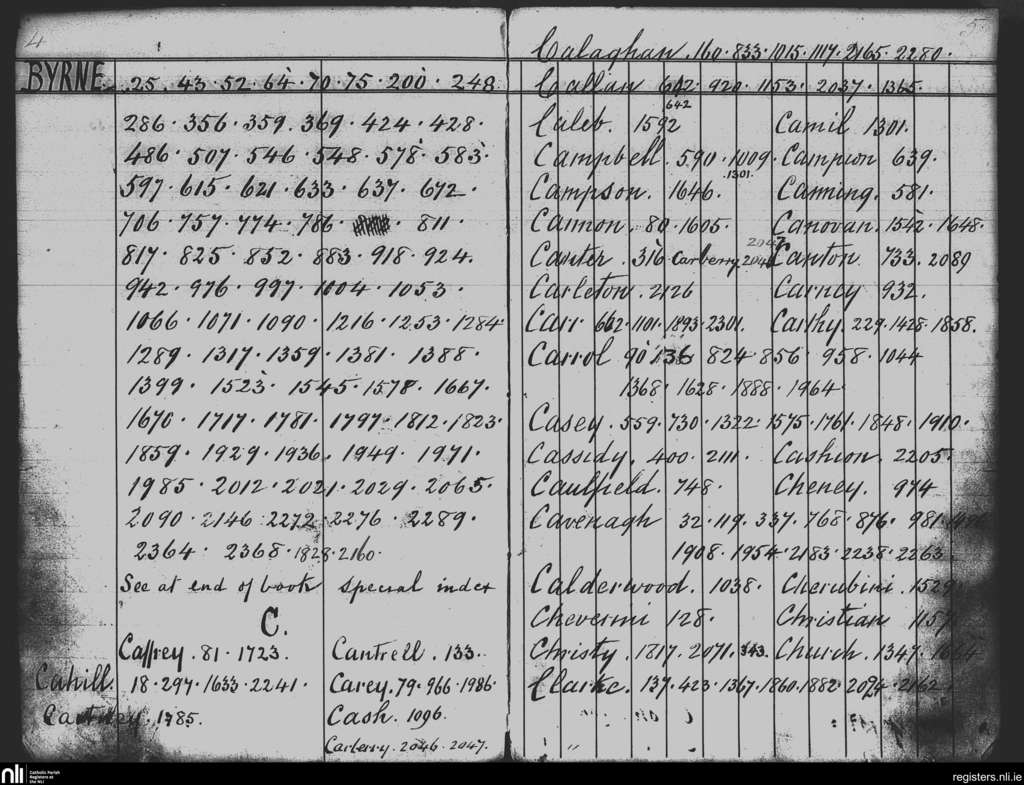 4
BYRNE. 25. 43. 52. 64. 70. 75. 200. 248
286. 356. 359. 369. 424. 428.
486. 507. 546. 548. 578. 583.
597. 615. 621. 633. 637. 672.
706. 757. 774. 786. 811.
817. 825. 852. 883. 918. 924.
942. 976. 997. 1004. 1053.
1066. 1071. 1090. 1216. 1253. 1284
1289. 1317. 1359. 1381. 1388.
1399. 1523. 1545. 1578. 1667.
1670. 1717. 1781. 1797. 1812. 1823.
1859. 1929. 1936. 1949. 1971.
1985. 2012. 2021. 2029. 2065.
2090. 2146. 2272. 2276. 2289.
2364. 2368. 1828. 2160.
See at end of book special index
C.
Caffrey. 81. 1723. Cantrell. 133.
Cahill. 18. 297. 1633. 2241. Carey. 79. 966. 1986.
1785. Cash. 1096.
Carberry. 2046. 2047.
5
Calaghan. 160. 833. 1015. 1117. 2165. 2280.
Callan 642. 920. 1153. 2037. 1365.
642
Caleb. 1592 Camil 1301.
Campbell. 590. 1009. Campion 639.
1301.
Campson. 1646. Canning. 581.
Cannon. 80. 1605. Canovan. 1542. 1648.
2047
Canter. 316. Carberry. 2046 Canton 733. 2089
Carleton. 2126 Carney 932.
Carr 662. 1101. 1893. 2301. Carthy. 229. 1428. 1858.
Carrol 90. 136 824. 856. 958. 1044
1368. 1628. 1888. 1964.
Casey. 559. 730. 1322. 1575. 1761. 1848. 1910.
Cassidy. 400. 2111. Cashion. 2205.
Caulfield. 748. Cheney. 974
Cavenagh 32. 119. 337. 768. 876. 981.
1908. 1954. 2183. 2238. 2263.
Calderwood. 1038. Cherubini. 1529
Cheverni 128. Christian 1157
Christy. 1817. 2071. 343. Church. 1347. 1664
Clarke. 137. 423. 1367. 1860. 1882. 2094. 2162.
nli Catholic Parish
Registers at
the NLI
registers.nli.ie